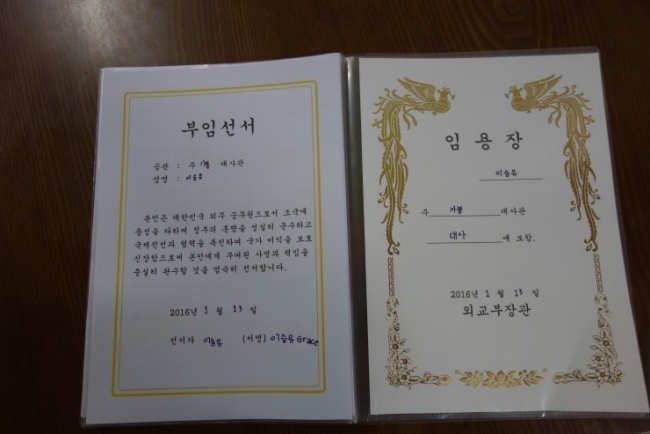 부임선서
공관 : 주 가봉 대사관
성명 :
본인은 대한민국 외무 공무원으로서 조국에
충성을 다하며 정부의 훈령을 성실히 준수하고
국제친선과 협력을 촉진하며 국가 이익을 보호
신장함으로써 본인에게 부여된 사명과 책임을
충실히 완수할 것을 엄숙히 선서합니다.
2016년 1 월 13 일
선서자 (서명) Grace
임 용 장
주 가봉 대사관
대사 에 보함.
2016년 1 월 13 일
외교부장관